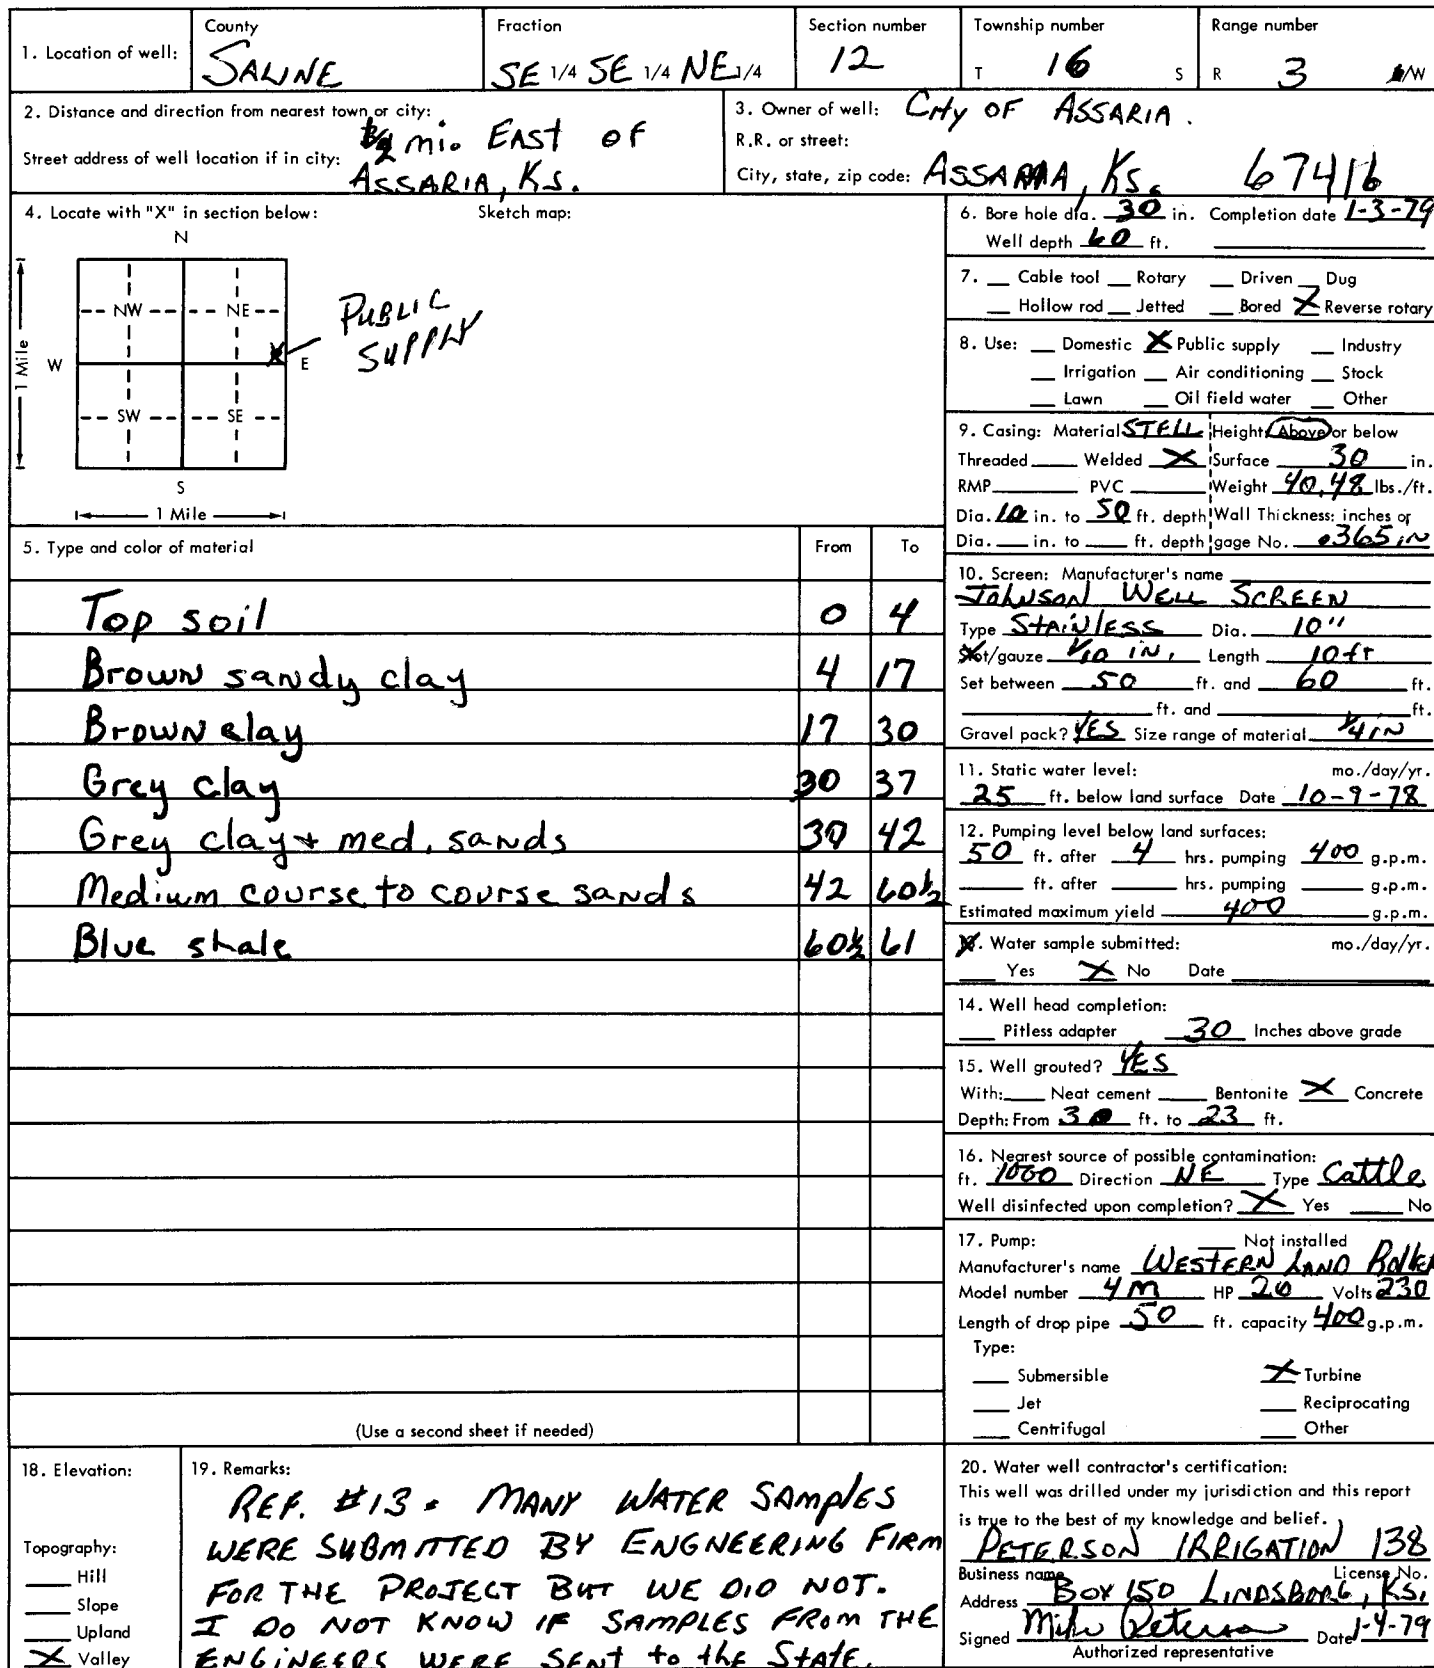 1. Location of well:
County
SALINE
Fraction
SE 1/4 SE 1/4 NE 1/4
Section number
12
Township number
T 16 S
Range number
R 3 /W
2. Distance and direction from nearest town or city:
mi. EAST OF
Street address of well location if in city:
ASSARIA, KS.
3. Owner of well: City OF ASSARIA.
R.R. or street:
City, state, zip code: ASSARIA, KS. 67416
4. Locate with "X" in section below:
Sketch map:
N
NW NE
1 Mile
W
X
E
PUBLIC
SUPPLY
SW SE
S
1 Mile
6. Bore hole dia. 30 in. Completion date 1-3-79
Well depth 60 ft.
7. Cable tool Rotary Driven Dug
Hollow rod Jetted Bored X Reverse rotary
8. Use: Domestic X Public supply Industry
Irrigation Air conditioning Stock
Lawn Oil field water Other
9. Casing: Material STELL Height: Above or below
Threaded Welded X Surface 30 in.
RMP PVC Weight 40.48 lbs./ft.
Dia. 10 in. to 50 ft. depth Wall Thickness: inches or
Dia. in. to ft. depth gage No. .365 in
5. Type and color of material From To
Top soil 0 4
Brown sandy clay 4 17
Brown clay 17 30
Grey clay 30 37
Grey clay + med. sands 37 42
Medium course to course sands 42 60½
Blue shale 60½ 61
(Use a second sheet if needed)
10. Screen: Manufacturer's name
JOHNSON WELL SCREEN
Type STAINLESS Dia. 10"
Slot/gauze 1/10 IN. Length 10 ft
Set between 50 ft. and 60 ft.
ft. and ft.
Gravel pack? YES Size range of material 1/4 IN
11. Static water level: mo./day/yr.
25 ft. below land surface Date 10-9-78
12. Pumping level below land surfaces:
50 ft. after 4 hrs. pumping 400 g.p.m.
ft. after hrs. pumping g.p.m.
Estimated maximum yield 400 g.p.m.
. Water sample submitted: mo./day/yr.
Yes X No Date
14. Well head completion:
Pitless adapter 30 Inches above grade
15. Well grouted? YES
With: Neat cement Bentonite X Concrete
Depth: From 3 ft. to 23 ft.
16. Nearest source of possible contamination:
ft. 1000 Direction NE Type Cattle
Well disinfected upon completion? X Yes No
17. Pump: Not installed
Manufacturer's name WESTERN LAND ROLLER
Model number 4M HP 20 Volts 230
Length of drop pipe 50 ft. capacity 400 g.p.m.
Type:
Submersible X Turbine
Jet Reciprocating
Centrifugal Other
18. Elevation:
Topography:
Hill
Slope
Upland
X Valley
19. Remarks:
REF. #13. MANY WATER SAMPLES
WERE SUBMITTED BY ENGNEERING FIRM
FOR THE PROJECT BUT WE DID NOT.
I DO NOT KNOW IF SAMPLES FROM THE
ENGINEERS WERE SENT to the STATE.
20. Water well contractor's certification:
This well was drilled under my jurisdiction and this report
is true to the best of my knowledge and belief.
PETERSON IRRIGATION 138
Business name License No.
Address BOX 150 LINDSBORG, KS.
Signed Mike Peterson Date 1-4-79
Authorized representative